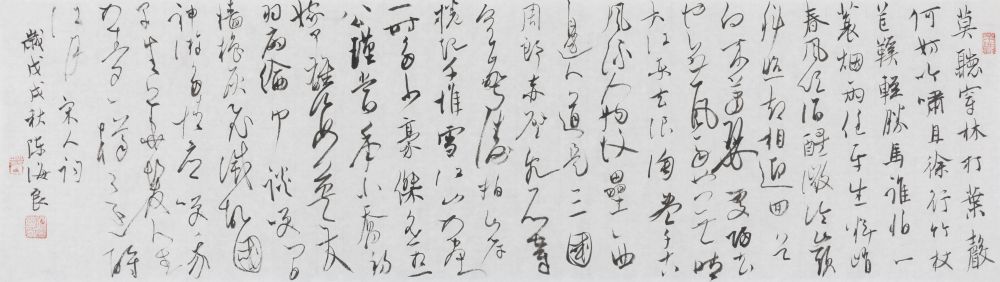 莫聽穿林打葉聲
何妨吟嘯且徐行竹杖
芒鞵輕勝馬誰怕一
蓑烟雨任平生料峭
春風吹酒醒微冷山頭
斜照却相迎回首
向来蕭瑟處歸去
也無風雨也無晴
大江東去浪淘盡千古
風流人物故壘西
邊人道是三國
周郎赤壁亂石穿
空驚濤拍岸
捲起千堆雪江山如畫
一時多少豪傑遙想
公瑾當年小喬初
嫁了雄姿英發
羽扇綸巾談笑間
檣櫓灰飛滅故國
神游多情應笑我
早生華髮人生
如夢一尊還酹
江月 宋人詞
歲戊戌秋陳海良